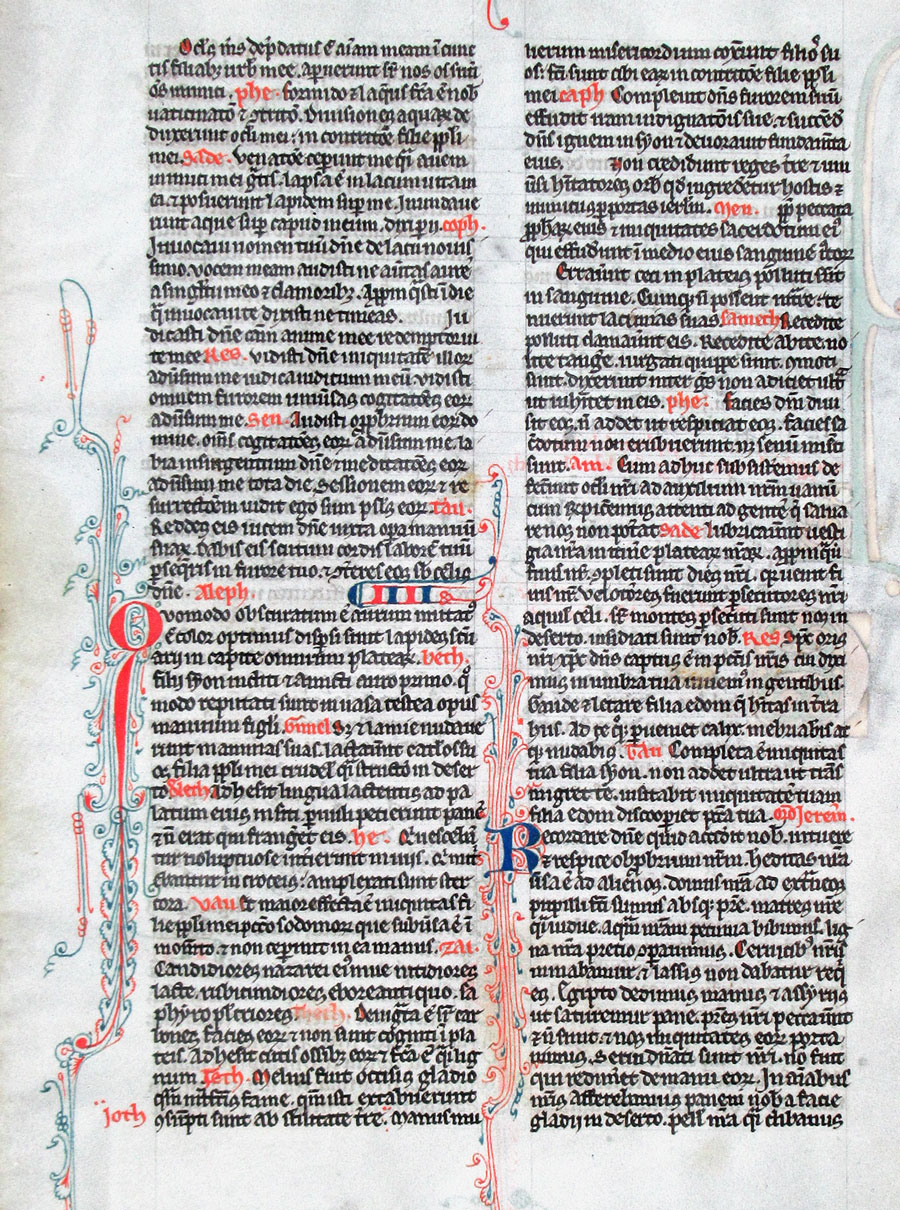 Oclꝰ mꝰ dep̄datus ē aīam meam ī cunc
tis filiabꝫ urbꝭ mee. Apuerunt sꝑ nos os suū
oēs inimici. phe. formido ⁊ laqueꝰ fcā ē nob
uaticinatō ⁊ ɔtritō. Diuisiones aquaꝝ de
duxerunt oculi mei: in contritōe filie ppli
mei. Sade. Venatōe ceperunt me q̄i auem
inimici mei gͣtis. Lapsa ē in lacum uita m̄
ea. ⁊ posuerunt lapidem suꝑ me. Inundaue
runt aque suꝑ caput meum. dixi perii. coph.
Inuocaui nomen tuū dn̄e de lacu nouis
simo. vocem meam audisti ne auertas aurē
a singultu meo ⁊ clamoribꝫ. Appropinq̄sti ī die
q̄n inuocaui te dixisti ne timeas. Iu
dicasti dn̄e cām anime mee redemptor ui
te mee Res. vidisti dn̄e iniquitatē illoꝝ
aduſum me iudica iudicium meū. vidisti
omnem furorem uniuſas cogitatōes eoꝝ
aduſum me. Sen. Audisti opp̄brium eoꝝ do
mine. om̄s cogitatōes eoꝝ aduſum me. la
bia insurgentium dn̄e ⁊ meditatōes eoꝝ
aduſum me tota die. Sessionem eoꝝ ⁊ re
surrectōem vidit ego sum psl̄ꝰ eoꝝ Tau.
Reddes eis uicem dn̄e iuxta opa manuū
suaꝝ. Dabis eis scutum cordis laborē tuū
ꝑsequis in furore tuo. ⁊ ɔteres eos sb̄ celis
dn̄e. Aleph. IIII
Quomodo obscuratum ē aurum mutatꝰ
ē color optimus dispsi sunt lapides scū
arii in capite omnium plateaꝝ. beth.
filii syon incliti ⁊ amicti auro primo. qͦ
modo reputati sunt in uasa testea opus
manuum figli. Gimel Sꝫ ⁊ lamie nudaue
runt mammas suas. lactauēt catlos su
os. filia ppli mei crudel̄ q̄i structō in deser
to Deleth Adhesit lingua lactentis ad pa
latum eius in siti paruuli petierunt panē
⁊ ñ erat qui frangeret eis. he. Qui uesceban
tur uoluptuose interierunt in uiis. q nut
ebantur in croceis: amplexati sunt ster
cora. vau Et maior effecta ē iniquitas fi
lie ppli mei pccō sodomoꝝ que subuſa ē ī
momto. ⁊ non ceperunt in ea manus. Zai.
Candidiores nazarei eiꝰ niue nitidiores
lacte. rubicundiores ebore antiquo. sa
phyro pulcriores Heth. Denigͣta ē sꝑ car
bones facies eoꝝ ⁊ non sunt cogniti ī pla
teis. Adhesit cutis ossibꝫ eoꝝ ⁊ fcā ē q̄i lig
num Teth. Melius fuit occisis gladio
q̄m intfectis fame. qm̄ isti extabuerunt
ɔsūpti sunt ab sterilitate terre. Manus mu
Joth
lierum misericordium coxerunt filios su
os: fcī sunt cibi eaꝝ in contritōe filie ppli
mei caph Compleuit dn̄s furorem suū
effudit iram indignatōis sue. ⁊ succēd
dn̄s ignem in syon ⁊ deuorauit fundamēta
eius. Non crediderunt reges tr̄e ⁊ uni
uſi hītatores orbis qd̄ ingrederetur hostis ⁊
inimicus ꝑ portas ierlm̄. Men. ppt̄ peccata
ppharꝝ eius ⁊ iniquitates sacerdotum eiꝰ
qui effuderunt ī medio eius sanguinē iustoꝝ
Errauert ceci in plateis polluti sunt
in sanguine. Cumqꝫ ñ possent intrare te
nuerunt lacinias suas Samech Recedite
polluti clamauert eis. Recedite abite. no
lite tangere. Iurgati quippe sunt. ⁊ ɔmoti
sunt. dixerunt inter gn̄tes non adiciet ultͣ
ut inhītet in eis. phe. facies dn̄i diui
sit eos. ñ addet ut respiciat eos. facies sa
cerdotum non erubuerunt neqꝫ senum miserti
sunt. Ain. Cum adhuc subsisteremus de
fecerunt oculi nr̄i ad auxilium nr̄m uanū
cum respiceremus attenti ad gentē q̄ salua
re nos non poterat Sade lubricauert uesti
gia nr̄a in itinere plateaꝝ nr̄aꝝ. appropinq̄uit
finis nr̄. ɔpleti sunt dies nr̄i. qꝛ uenit fi
nis nr̄. Velociores fuerunt ꝑsecutores nr̄i
aquilis celi. sꝑ montes ꝑsecuti sunt nos in
deserto. insidiati sunt nob. Res spc̄ oris
nr̄i xp̄c dn̄s captus ē in pctīs nr̄is. cui dixi
mus in umbra tua uiuemꝰ in gentibus.
Gaude ⁊ letare filia edom q̄ hītas in trā
hus. Ad te qꝫ ꝑueniet calix. inebriabis at
qꝫ nudabis. Tau Completa ē iniquitas
tua filia syon. non addet ultra ut trās
migret te. uisitabit iniquitatē tuam
filia edom discooperiet pccā tua. Orō Jeremīe.
Recordare dn̄e quid acciderit nob. intuere
⁊ respice obp̄brium nr̄m. hereditas nr̄a
uſa ē ad alienos. domus nr̄a ad extraneos
pupilli fcī sumus absqꝫ pr̄e. matres nr̄e
q̄i uidue. Aquam nr̄am pecunia bibimus. lig
na nr̄a pretio ɔparauimus. Ceruicibꝰ nr̄is
minabamur. ⁊ lassis non dabatur requi
es. Egipto dedimus manus ⁊ assyriis
ut saturemur pane. pr̄es nr̄i peccauert
⁊ ñ sunt. ⁊ nos iniquitates eoꝝ porta
uimus. serui dn̄ati sunt nr̄i. nō fuit
qui redimeret de manu eoꝝ. In aīabus
nr̄is afferebamus panem nob a facie
gladii in deserto. pell nr̄a q̄i clibanus